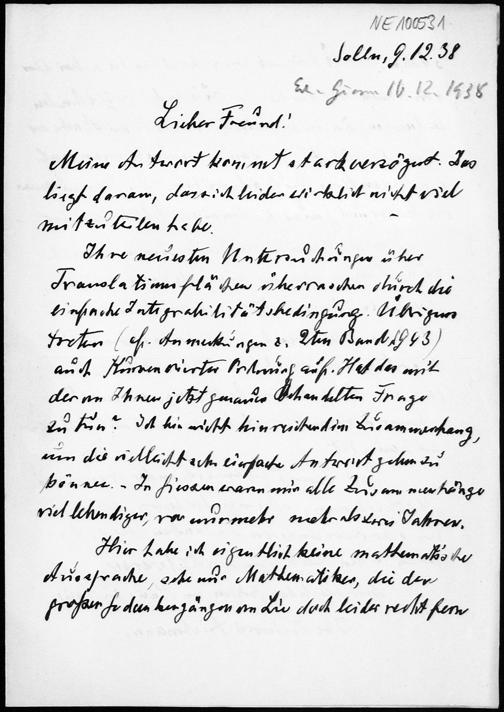 NE100531
Solln, 9.12.38
16.12.1938
Lieber Freund!
Meine Antwort kommt stark verzögert. Das
liegt daran, dass ich leider wirklich nicht viel
mitzuteilen habe.
Ihre neuesten Untersuchungen über
Translationsflächen überraschen durch die
einfache Integrabilitätsbedingung. Übrigens
treten (cf. Anmerkungen z. 2ten Band, 943)
auch Kurven vierter Ordnung auf. Hat das mit
der von Ihnen jetzt genauer behandelten Frage
zu tun? Ich bin nicht hinreichend im Zusammenhang,
um die vielleicht sehr einfache Antwort geben zu
können. – In Giessen waren mir alle Zusammenhänge
viel lebendiger, vor nunmehr mehr als zwei Jahren.
Hier habe ich eigentlich keine mathematische
Aussprache, sehe nur Mathematiker, die den
großen Gedankengängen von Lie doch leider recht fern